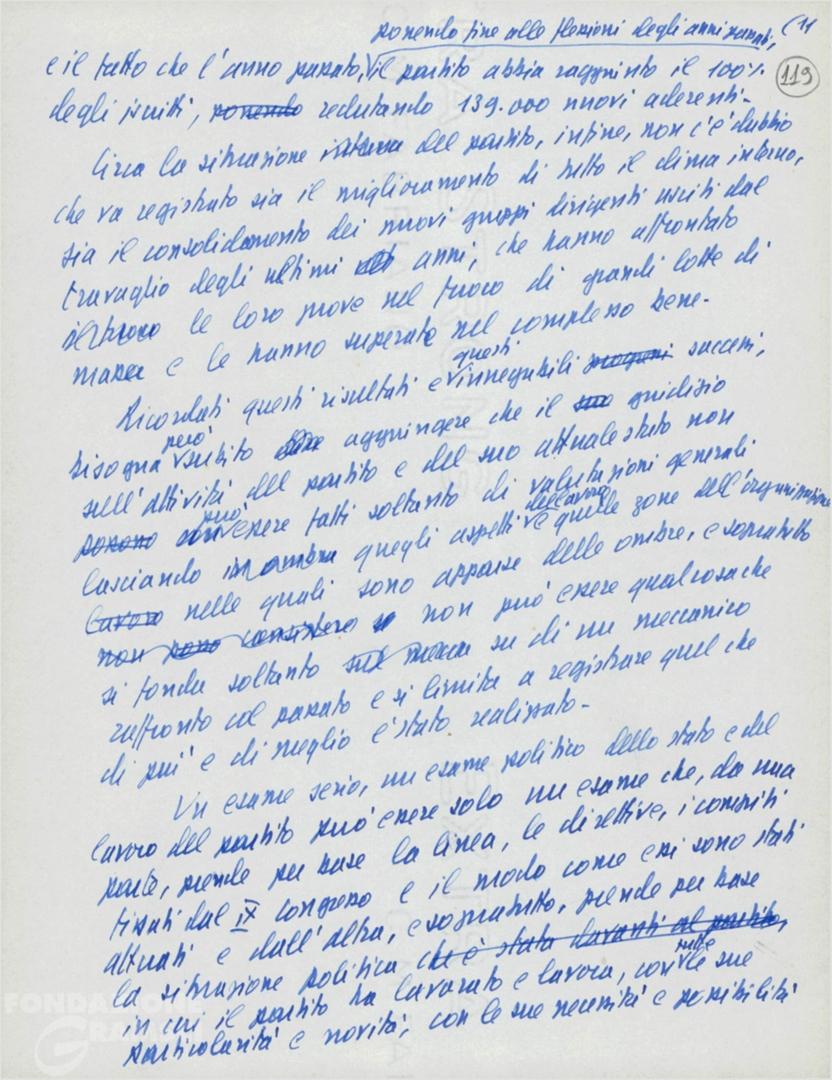 ponendo fine alle flessioni degli anni passati, (11
119
e il fatto che l'anno passato, il partito abbia raggiunto il 100%
degli iscritti, ponendo reclutando 139.000 nuovi aderenti.
Circa la situazione interna del partito, infine, non c'è dubbio
che va registrato sia il miglioramento di tutto il clima interno,
sia il consolidamento dei nuovi gruppi dirigenti usciti dal
travaglio degli ultimi anni, che hanno affrontato
le loro prove nel fuoco di grandi lotte di
massa e le hanno superate nel complesso bene.
questi
Ricordati questi risultati e innegabili progressi successi,
però
bisogna subito aggiungere che il suo giudizio
sull'attività del partito e del suo attuale stato non
può
possono essere fatti soltanto di valutazioni generali
del lavoro
lasciando in ombra quegli aspetti e quelle zone dell'organizzazione
lavoro nelle quali sono apparse delle ombre, e soprattutto
non possono consistere non può essere qualcosa che
si fonda soltanto su di un meccanico
raffronto col passato e si limita a registrare quel che
di più e di meglio è stato realizzato.
Un esame serio, un esame politico dello stato e del
lavoro del partito può essere solo un esame che, da una
parte, prende per base la linea, le direttive, i compiti
fissati dal IX congresso e il modo come essi sono stati
attuati e dall'altra, e soprattutto, prende per base
la situazione politica che è stata davanti al partito,
tutte
in cui il partito ha lavorato e lavora, con le sue
particolarità e novità, con le sue necessità e possibilità
FONDAZIONE
GRAMSCI